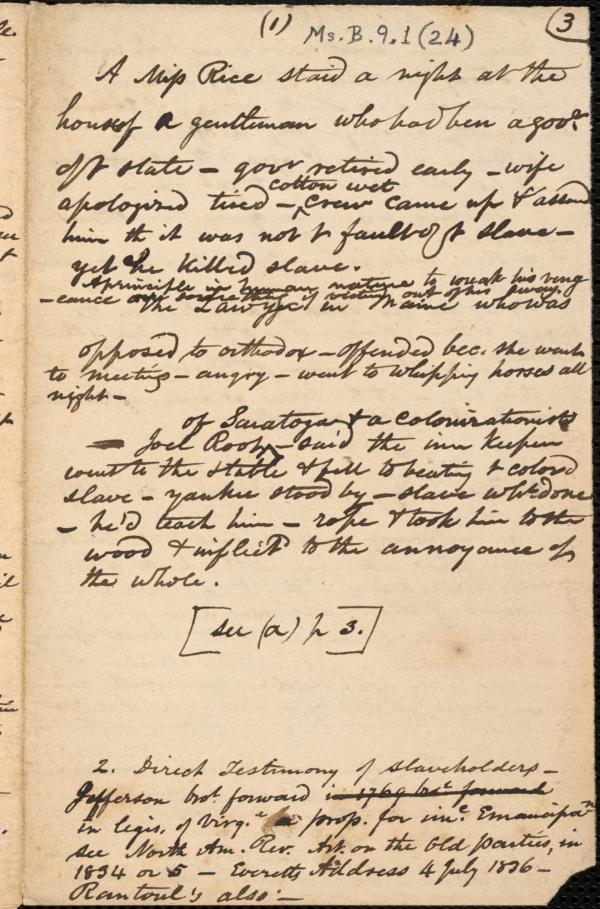 (1) Ms. B. 9. 1 (24) 3
A Miss Rice staid a night at the
house of a gentleman who had been a govr.
of t state – govr retired early – wife
cotton wet
apologized tired – crew came up &
him th it was not t fault of t slave –
yet he killed slave.
A principle in human nature to wreak his veng
-eance out of his way.
The Lawyer in Maine who was
opposed to orthodox – offended bec. she went
to meetings – angry – went to whipping horses all
night –
of Saratoga & a colonizationist
– Joel Root – said the inn keeper
went to the stable & fell to beating t colord
slave – yankee stood by – slave done
– he'd teach him – rope & took him to the
wood & inflict to the annoyance of
the whole.
[see (a) p 3.]
2. Direct Testimony of slaveholders –
Jefferson brot. forward in 1769 brot forward
in legis. of Virga prop. for Emancipan
see North Am. Rev. Art. on the Old parties, in
1834 or 5 – Everetts Address 4 July 1836 –
Rantoul's also –